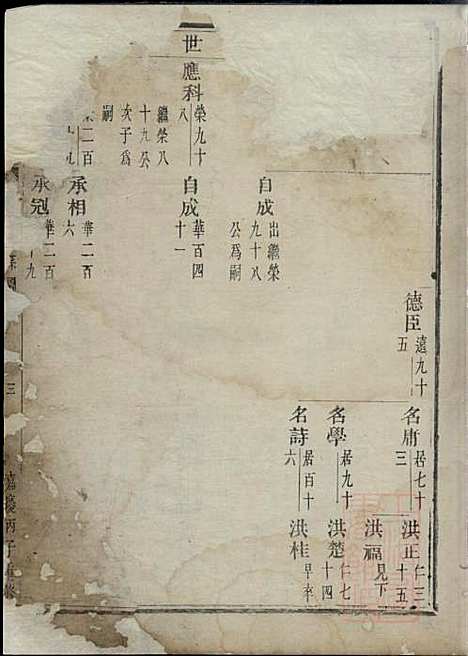 德臣 遠九十五
名庸 居七十三
洪正 仁三十五
洪福 見下
名學 居九十
洪楚 仁七十四
名詩 居百十六
洪桂 早卒
自成 出繼榮九十八公爲嗣
世
應科 榮九十八
繼榮八十九公次子爲嗣
自成 華百四十一
二百
承相 華二百六
承冠 華二百九
三
嘉慶丙子重修